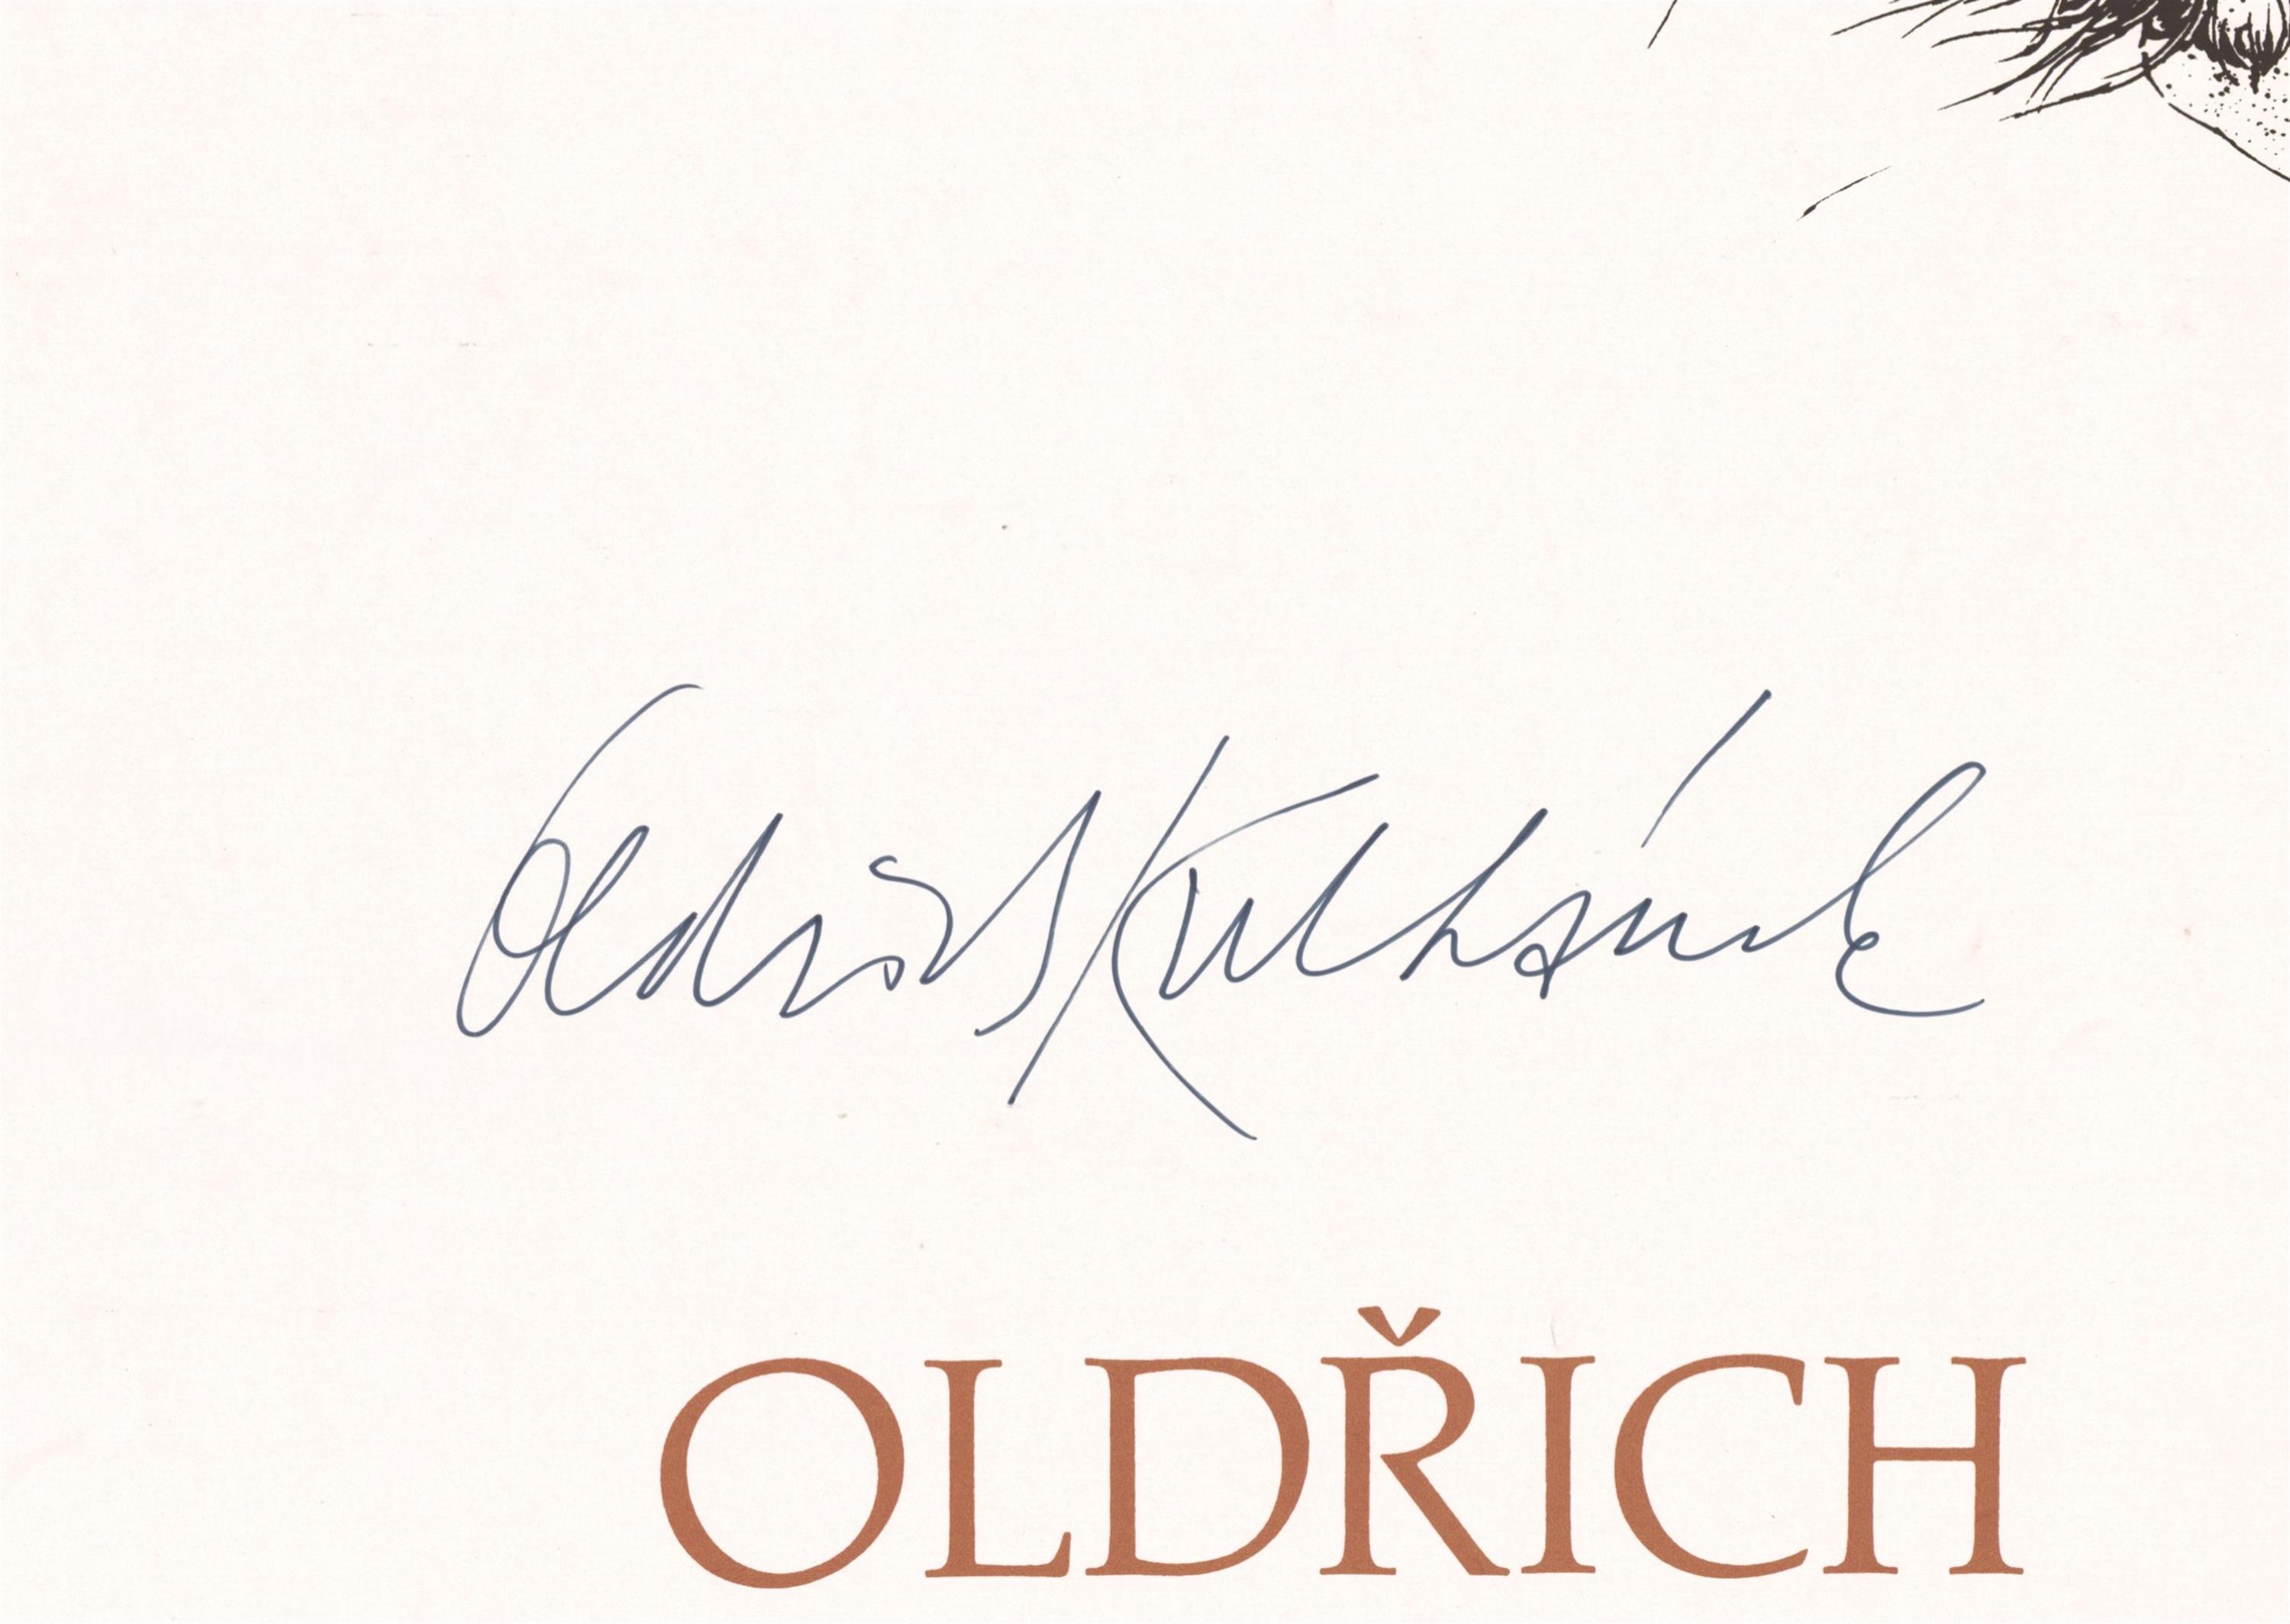 Oldřich Kulhánek
OLDŘICH